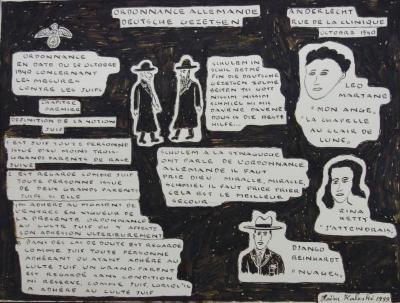 ORDONNANCE ALLEMANDE
DEUTSCHE GEZETSEN
ANDERLECHT
RUE DE LA CLINIQUE
OCTOBRE 1940
ORDONNANCE
EN DATE DU 28 OCTOBRE
1940 CONCERNANT
LES MESURES
CONTRE LES JUIFS
CHAPITRE
PREMIER
DEFINITION DE LA NOTION
JUIF
EST JUIF TOUTE PERSONNE
ISSUE D'AU MOINS TROIS
GRANDS PARENTS DE RACE
JUIVE
EST REGARDE COMME JUIF
TOUTE PERSONNE ISSUE
DE DEUX GRANDS PARENTS
JUIFS SI ELLE
ADHERE AU MOMENT DE
L'ENTREE EN VIGUEUR DE
LA PRESENTE ORDONNANCE
AU CULTE JUIF OU Y AFFECTE
SON ADHESION ULTERIEUREMENT
DANS DES CAS DE DOUTE EST REGARDE
COMME JUIF TOUTE PERSONNE
ADHERANT OU AYANT ADHERE AU
CULTE JUIF UN GRAND-PARENT
EST REGARDE SANS CONDITION
NI RESERVE, COMME JUIF, LORSQU'IL
A ADHERE AU CULTE JUIF
SCHULEM IN
SCHIL BETME
FIN DIE DEUTSCHE
GEZETSEN
BEITEN
NISSIM NISSIM
SCHMIEL MI MIS
DAVNE DAVENE
DIE BESTE
HILFE...
SCHULEM A LA SYNAGOGUE
ONT PARLE DE L'ORDONNANCE
ALLEMANDE IL FAUT
PRIE DIEU. MIRACLE, MIRACLE,
SCHMIEL IL FAUT PRIER PRIER
CELA EST LE MEILLEUR
SECOUR
LEO
MARJANE
"MON ANGE,
LA CHAPELLE
AU CLAIR DE
LUNE,
RINA
KETTY
"J'ATTENDRAIS,
DJANGO
REINHARDT
"NUAGES,
Haïm Kaliski 1999